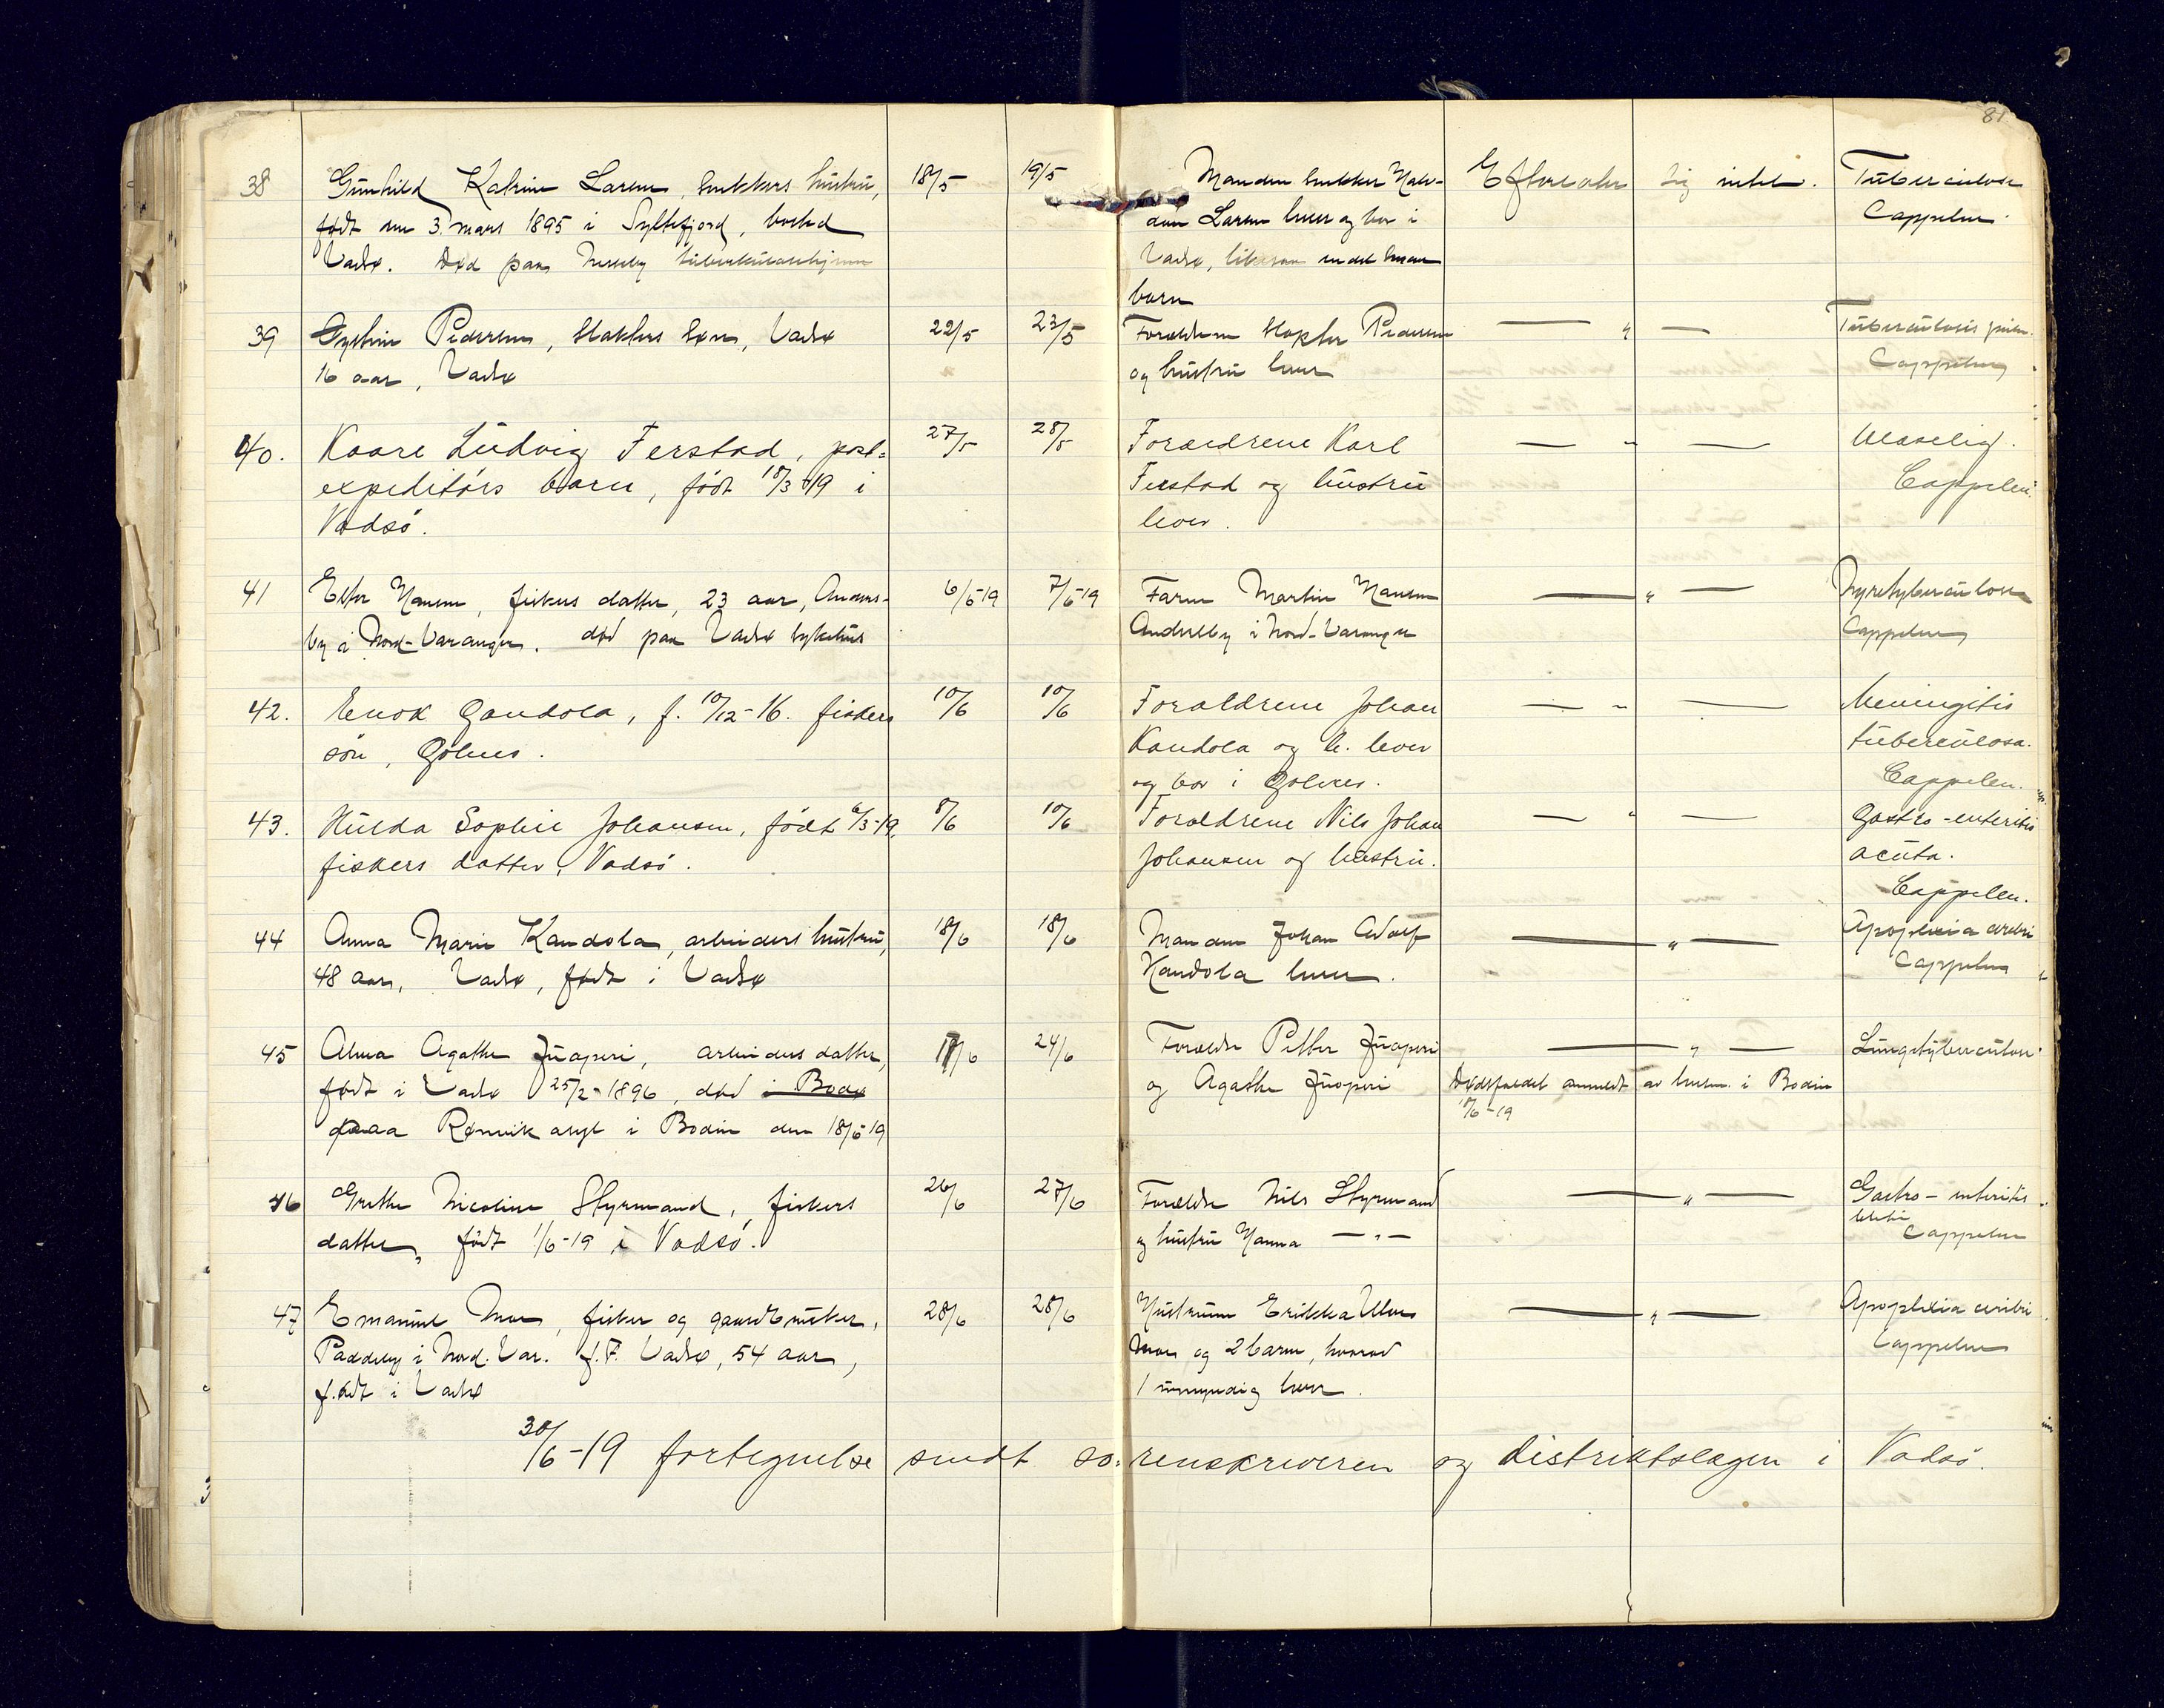 81.
38 Gunhild Katrine Larsen, snekkers hustru, 18/5 19/5 Manden snekker Halv- Efterlater sig intet. Tuberculose
født den 3. mars 1895 i Syltefjord, bosted dan Larsen lever og bor i Cappelen.
Vadsø. Død paa Nesseby tuberkulosehjem Vadsø, likesaa endel smaa
barn
39 Øystein Pedersen, slakters søn, Vadsø 22/5 23/5 Forældrene slakter Pedersen — " — Tuberculosis pulm.
16 aar, Vadsø og hustru lever Cappelen
40. Kaare Ludvig Ferstad, post= 27/5 28/5 Forældrene Karl — " — Cappelen.
expeditørs barn, født 18/3 19 i Ferstad og hustru
Vadsö. lever.
41 Ester Hansen, fiskers datter, 23 aar, Anders- 6/6-19 7/6-19 Faren Martin Hansen — " — Nyretuberculose
by i Nord-Varanger. død paa Vadsø sykehus Andersby i Nord-Varanger Cappelen
42. Enok Gandola, f. 10/12-16. fiskers 10/6 10/6 Forældrene Johan — " — Meningitis
sön, Golnes. Kandola og h. lever tuberculosa.
og bor i Golnes. Cappelen.
43. Hulda Sophie Johansen, født 6/3-19, 8/6 10/6 Forældrene Nils Johan — " — Gastro-enteritis
fiskers datter, Vadsö. Johansen og hustru. acuta.
Cappelen.
44 Anna Marie Kandola, arbeiders hustru, 18/6 18/6 Manden Johan Adolf — " — Apoplexia cerebri
48 aar, Vadsø, født i Vadsø Kandola lever. Cappelen
45 Alma Agathe Juoperi, arbeiders datter, 17/6 24/6 Forældre Petter Juoperi — " — Lungetuberculose
født i Vadsø 25/2-1896, død i Bodø og Agathe Juoperi Dødsfaldet anmeldt av lensm. i Bodin
paa Rønvik asyl i Bodin den 18/6 19 18/6-19
46 Grethe Nicoline Styrmand, fiskers 26/6 27/6 Forældre Nils Styrmand — " — Gastro-enteritis
datter, født 1/6-19 i Vadsö. og hustru Hanna — " — Cappelen
47 Emanuel Mox, fisker og gaardbruker, 28/6 28/6 Hustruen Erikka — " — Apoplexia cerebri
Paddeby i Nord. Var. f. F. Vadsø, 54 aar, og 2 barn, hvorav Cappelen
født i Vadsø 1 umyndig lever.
30/6-19 fortegnelse sendt so- renskriveren og distriktslægen i Vadsö.